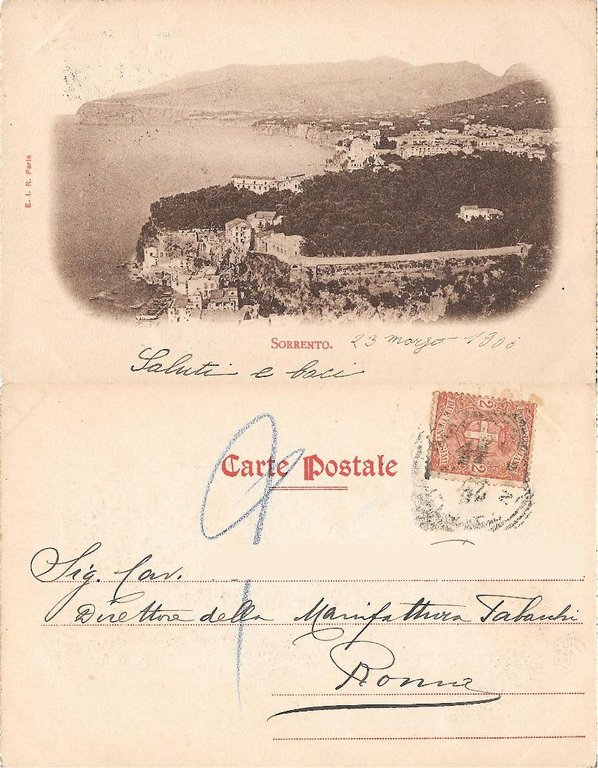 E. I. R. Paris
SORRENTO.
23 marzo 1900
Saluti e baci
Carte Postale
Sig. Cav.
Direttore della Manifattura Tabacchi
Roma